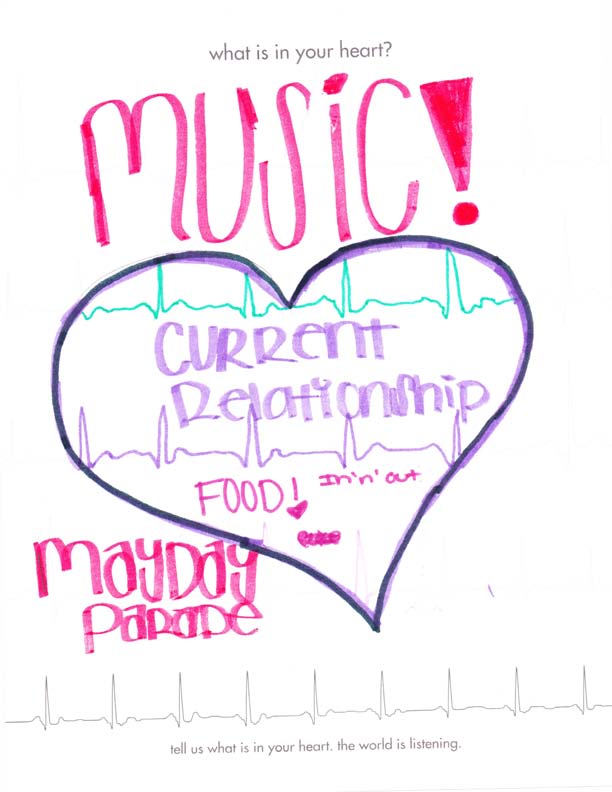 what is in your heart?
MUSiC!
CURRent
Relationship
FOOD! In'n' out
MayDay
PaRaDe
tell us what is in your heart. the world is listening.